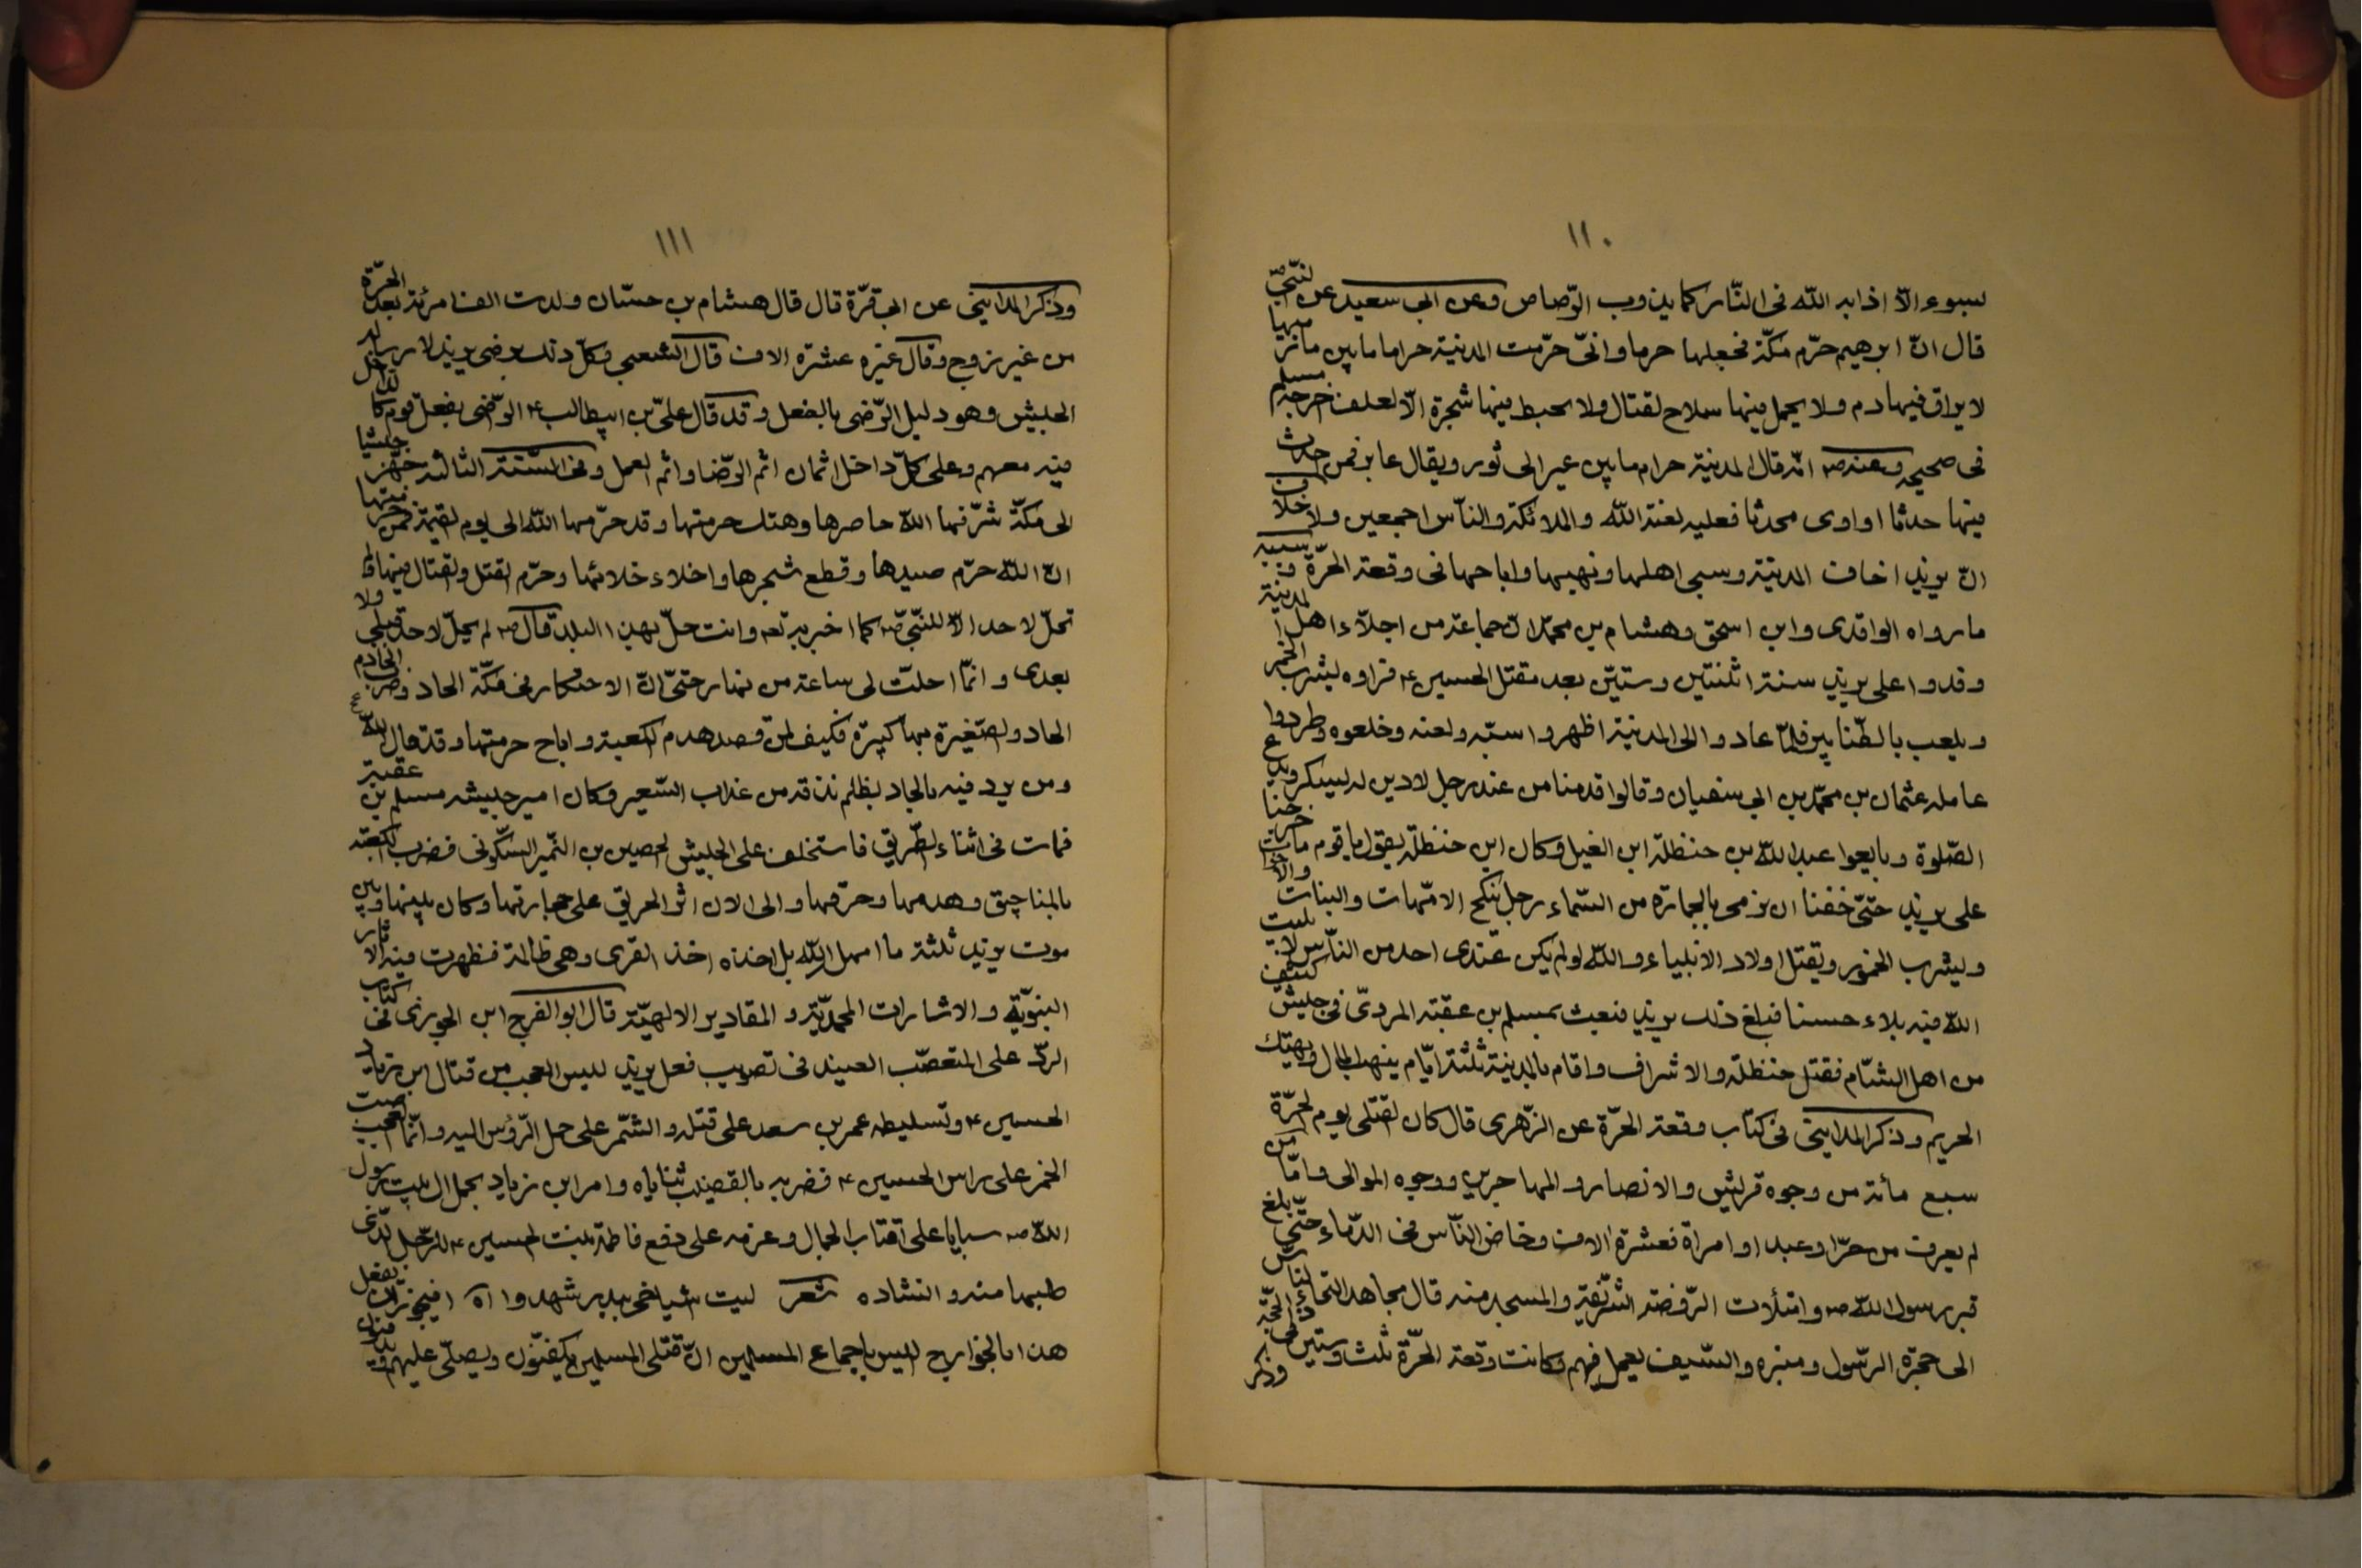 ١١٠
لسوء الّا اذابه الله فى النّار كما يذوب الرّصاص وعن ابى سعيد عن النّبىّ ص
قال انّ ابرهيم حرّم مكّة فجعلها حرما وانّى حرّمت المدينة حراما ما بين مأزميها
لا يراق فيها دم ولا يحمل فيها سلاح لقتال ولا يخبط فيها شجرة الّا لعلف اخرجه مسلم
فى صحيحه وعنه ص انّه قال المدينة حرام ما بين عير الى ثور ويقال عاير فمن احدث
فيها حدثا او اوى محدثا فعليه لعنة الله والملائكة والنّاس اجمعين ولا خلاف
انّ يزيد اخاف المدينة وسبى اهلها ونهبها واباحها فى وقعة الحرّة وسببه
ما رواه الواقدى وابن اسحق وهشام بن محمّد انّ جماعة من اجلّاء اهل المدينة
وفدوا على يزيد سنة اثنتين وستّين بعد مقتل الحسين ع فراوه يشرب الخمر
ويلعب بالطّنابير فلمّا عادوا الى المدينة اظهروا سبّه ولعنه وخلعوه وطردوا
عامله عثمان بن محمّد بن ابى سفيان وقالوا قدمنا من عند رجل لا دين له يسكر ويدع
الصّلوة وبايعوا عبد الله بن حنظلة ابن الغيل وكان ابن حنظلة يقول يا قوم ما خرجنا
على يزيد حتّى خفنا ان نرمى بالحجارة من السّماء رجل ينكح الامّهات والبنات والاخوات
ويشرب الخمور ويقتل اولاد الانبياء والله لو لم يكن عندى احد من النّاس لابليت
الله فيه بلاء حسنا فبلغ ذلك يزيد فبعث بمسلم بن عقبة المردىّ فى جيش كثيف
من اهل الشّام فقتل حنظلة والاشراف واقام بالمدينة ثلثة ايّام ينهب المال ويهتك
الحريم وذكر المداينى فى كتاب وقعة الحرّة عن الزّهرى قال كان القتلى يوم الحرّة
سبع مائة من وجوه قريش والانصار والمهاجرين ووجوه الموالى وامّا من
لم يعرف من حرّ او عبد او امراة فعشرة الاف وخاض النّاس فى الدّماء حتّى بلغ
قبر رسول الله ص وامتلأت الرّوضة الشّريفة والمسجد منه قال مجاهد التجاء النّاس
الى حجرة الرّسول ومنبره والسّيف يعمل فيهم وكانت وقعة الحرّة ثلث وستين فى ذى الحجّة
وذكر
١١١
وذكر المداينى عن ابى قرّة قال قال هشام بن حسّان ولدت الف امرئة بعد الحرّة
من غير زوج وقال غيره عشرة الاف قال الشعبى وكلّ ذلك برضى يزيد لارساله
الجيش وهو دليل الرّضى بالفعل وقد قال علىّ بن ابيطالب ع الرّضى بفعل قوم كالدّاخل
فيه معهم وعلى كلّ داخل اثمان اثم الرّضا واثم العمل وفى السّنة الثالثه جهّز جيشا
الى مكّة شرّفها الله حاصرها وهتك حرمتها وقد حرّمها الله الى يوم القيمة فمن حرمتها
انّ الله حرّم صيدها وقطع شجرها واخلاء خلائها وحرّم القتل والقتال فيها ولم
تحلّ لاحد الّا للنّبىّ ص كما اخبر به تعه وانت حلّ بهذا البلد قال ص لم يحلّ لاحد قبلى ولا
بعدى وانّما احلّت لى ساعة من نهار حتّى انّ الاحتكار فى مكّة الحاد وضرب الخادم
الحاد والصّغيرة بها كبيرة فكيف لمن قصد هدم الكعبة واباح حرمتها وقد قال الله تع
ومن يرد فيه بالحاد بظلم نذقه من عذاب السّعير وكان امير جيشه مسلم بن عقبة
فمات فى اثناء الطّريق فاستخلف على الجيش الحصين بن النّمير السّكونى فضرب الكعبة
بالمناجيق وهدمها وحرقها والى الان اثر الحريق على حجارتها وكان بينها وبين
موت يزيد ثلثة ما امهل الله بل اخذه اخذ القرى وهى ظالمة فظهرت فيه الاثار
النبويّة والاشارات المحمديّة والمقادير الالهيّة قال ابو الفرج ابن الجوزى فى كتاب
الردّ على المتعصّب العنيد فى تصويب فعل يزيد ليس العجب من قتال ابن زياد
الحسين ع وتسليطه عمر بن سعد على قتله والشّمر على حمل الرّؤس اليه وانّما العجب صبّ
الخمر على راس الحسين ع فضربه بالقضيب ثناياه وامر ابن زياد بحمل ال بيت رسول
الله ص سبايا على اقتاب الجمال وعزمه على دفع فاطمة بنت الحسين ع للرّجل الّذى
طلبها منه وانشاده شعر ليت اشياخى ببدر شهدوا اه افيجوز ان يفعل
هذا بالخوارج اليس باجماع المسلمين انّ قتلى المسلمين يكفنّون ويصلّى عليهم